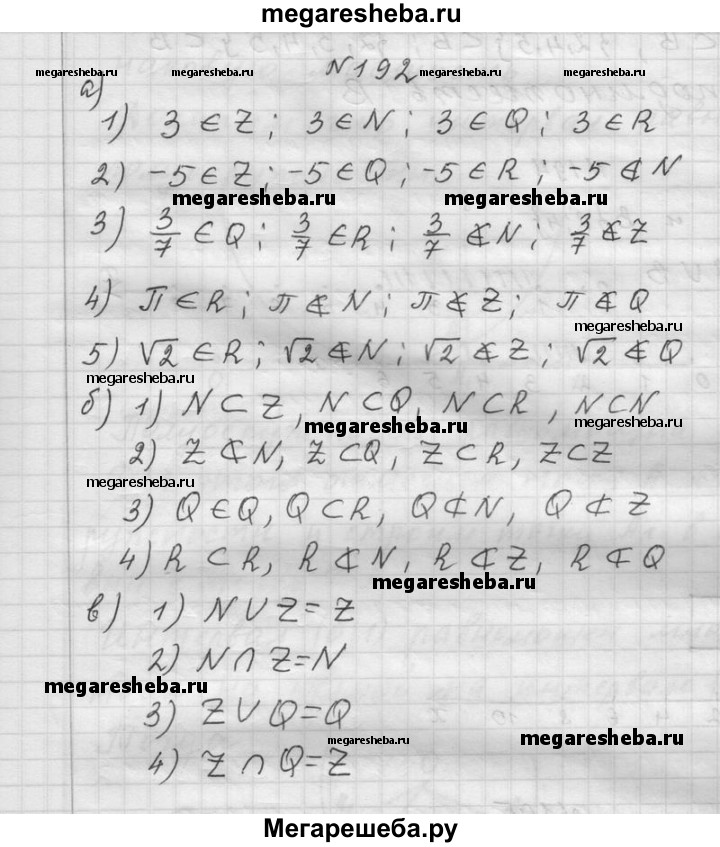 megaresheba.ru
N192
megaresheba.ru megaresheba.ru megaresheba.ru
а)
1) 3 ∈ Z ; 3 ∈ N ; 3 ∈ Q ; 3 ∈ R
2) -5 ∈ Z ; -5 ∈ Q ; -5 ∈ R ; -5 ∉ N
megaresheba.ru megaresheba.ru
3) 3/7 ∈ Q ; 3/7 ∈ R ; 3/7 ∉ N ; 3/7 ∉ Z
4) π ∈ R ; π ∉ N ; π ∉ Z ; π ∉ Q
megaresheba.ru
5) √2 ∈ R ; √2 ∉ N ; √2 ∉ Z ; √2 ∉ Q
megaresheba.ru
б) 1) N ⊂ Z , N ⊂ Q , N ⊂ R , N ⊂ N
megaresheba.ru megaresheba.ru
2) Z ⊄ N, Z ⊂ Q, Z ⊂ R, Z ⊂ Z
megaresheba.ru
3) Q ∈ Q, Q ⊂ R, Q ⊄ N, Q ⊄ Z
4) R ⊂ R, R ⊄ N, R ⊄ Z, R ⊄ Q
megaresheba.ru
в) 1) N ∪ Z = Z
2) N ∩ Z = N
megaresheba.ru
3) Z ∪ Q = Q
megaresheba.ru megaresheba.ru
4) Z ∩ Q = Z
Мегарешеба.ру